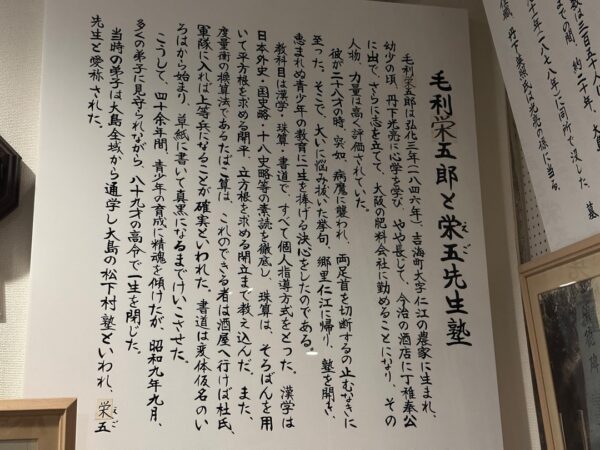 数は三百五十人
までの間、約二十年、
十一年(一八七八年)に同所で没した。墓
住職 丹下英照氏は光亮の孫に当る。
毛利栄五郎と栄五先生塾
えご
毛利栄五郎は弘化三年(一八四六年)、吉海町大字仁江の農家に生まれ、
幼少の頃、丹下光亮に心学を学び、やや長じて、今治の酒店に丁稚奉公
に出て、さらに志を立てて、大阪の肥料会社に勤めることになり、その
人物、力量は高く評価されていた。
彼が二十八才の時、突如、病魔に襲われ、両足首を切断するの止むなきに
至った。そこで、大いに悩み抜いた挙句、郷里仁江に帰り、塾を開き、
恵まれぬ青少年の教育に一生を捧げる決心をしたのである。
教科目は漢学・珠算・書道で、すべて個人指導方式をとった。漢学は
日本外史・国史略・十八史略等の素読を徹底し、珠算は、そろばんを用
いて平方根を求める開平、立方根を求める開立まで教え込んだ。また、
度量衡の換算法であるたばこ算は、これのできる者は酒屋へ行けば杜氏、
軍隊に入れば上等兵になることが確実といわれた。書道は変体仮名のい
ろはから始まり、草紙に書いて真黒になるまでけいこさせた。
こうして、四十余年間、青少年の育成に精魂を傾けたが、昭和九年九月、
多くの弟子に見守られながら、八十九才の高令で一生を閉じた。
当時の弟子は大島全域から通学し大島の松下村塾といわれ、栄五
えご
先生と愛称された。